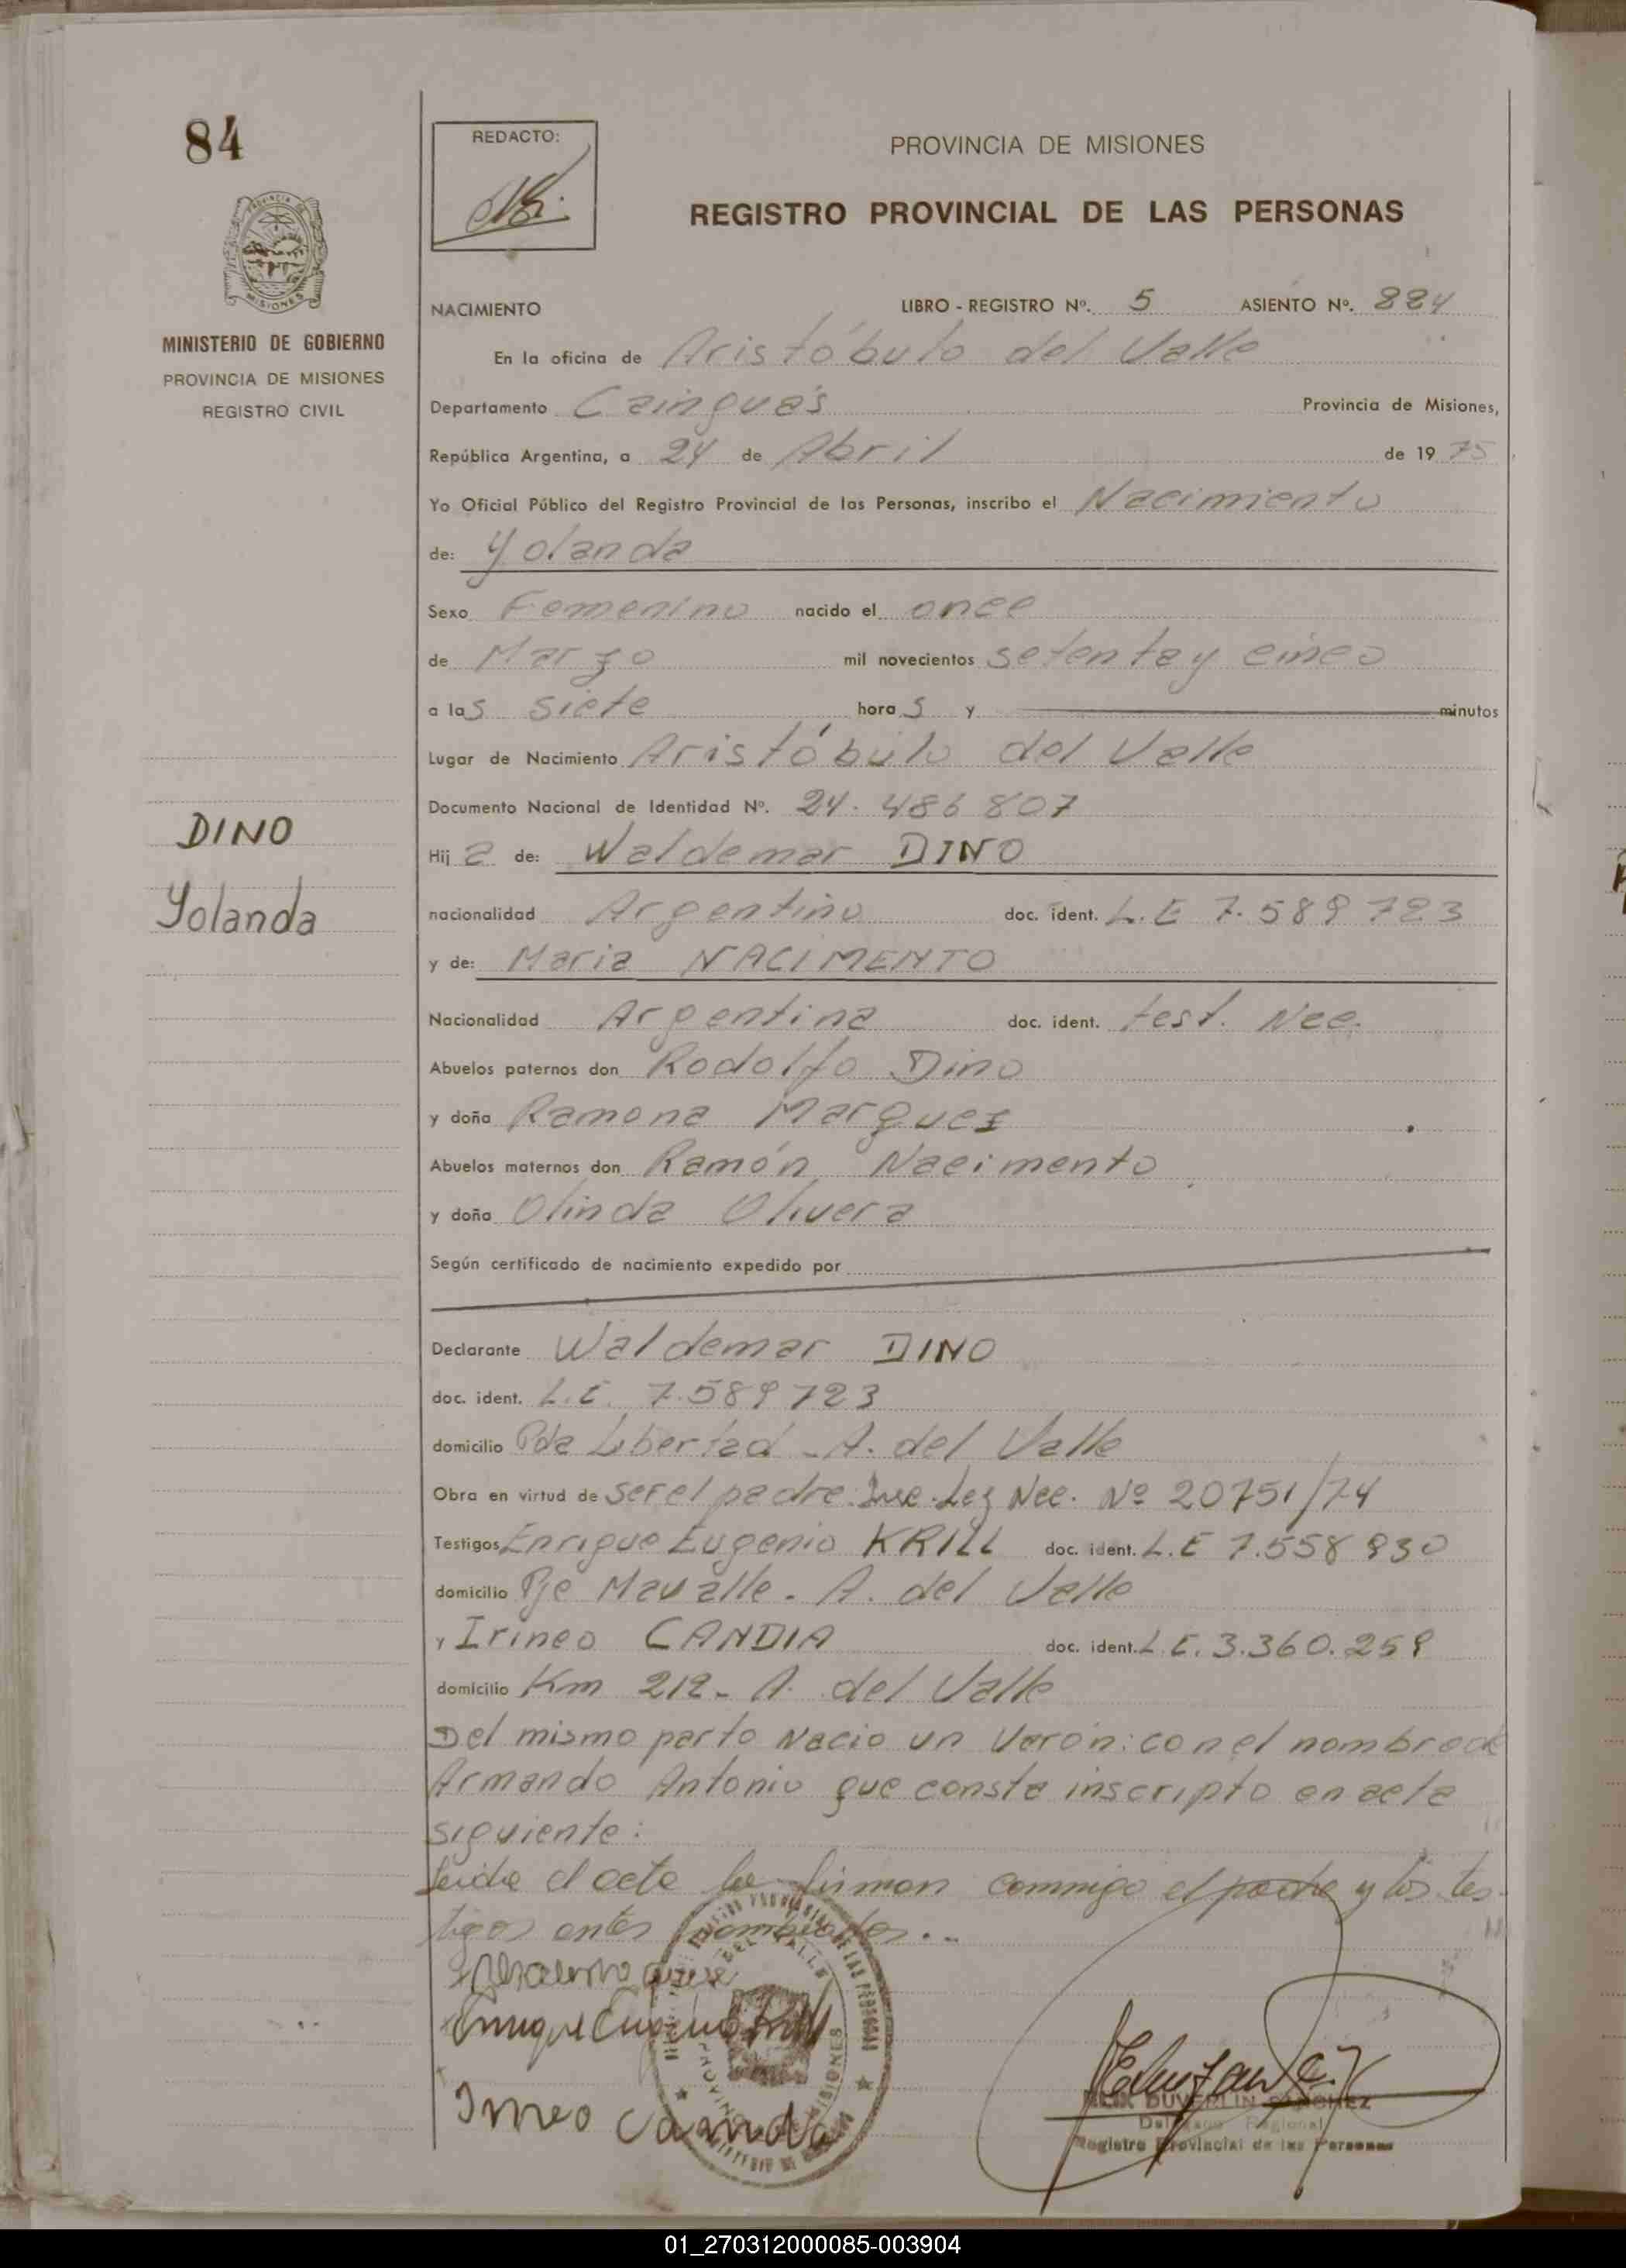 84
REDACTO:
PROVINCIA DE MISIONES
REGISTRO PROVINCIAL DE LAS PERSONAS
MINISTERIO DE GOBIERNO
PROVINCIA DE MISIONES
REGISTRO CIVIL
NACIMIENTO LIBRO - REGISTRO Nº. 5 ASIENTO Nº. 884
En la oficina de Aristóbulo del Valle
Departamento Cainguás Provincia de Misiones,
República Argentina, a 24 de Abril de 1975
Yo Oficial Público del Registro Provincial de las Personas, inscribo el Nacimiento
de: Yolanda
Sexo Femenino nacido el once
de Marzo mil novecientos setenta y cinco
a las siete horas y minutos
Lugar de Nacimiento Aristóbulo del Valle
Documento Nacional de Identidad Nº. 24.486807
DINO
Yolanda
Hija de: Waldemar DINO
nacionalidad Argentino doc. ident. L.E 7.589723
y de: Maria NACIMENTO
Nacionalidad Argentina doc. ident. test. Nac.
Abuelos paternos don Rodolfo Dino
y doña Ramona Marques
Abuelos maternos don Ramón Nacimento
y doña Olinda Olivera
Según certificado de nacimiento expedido por
Declarante Waldemar DINO
doc. ident. L.E. 7.589723
domicilio Pda Libertad - A. del Valle
Obra en virtud de ser el padre. Insc. Ley Nac. Nº 20751/74
Testigos Enrique Eugenio KRILL doc. ident. L.E 7.558930
domicilio Pje Mavalle - A. del Valle
y Irineo CANDIA doc. ident. L.E. 3.360.259
domicilio Km 212 - A. del Valle
Del mismo parto Nacio un Varón: con el nombre de
Armando Antonio que consta inscripto en acta
siguiente:
Leida el acta la firman conmigo el padre y los tes-
tigos antes nombrados..
Enrique Eugenio Krill
Irineo Candia
FELIX DUVERLIN SANCHEZ
Delegado Regional
Registro Provincial de las Personas
01_270312000085-003904